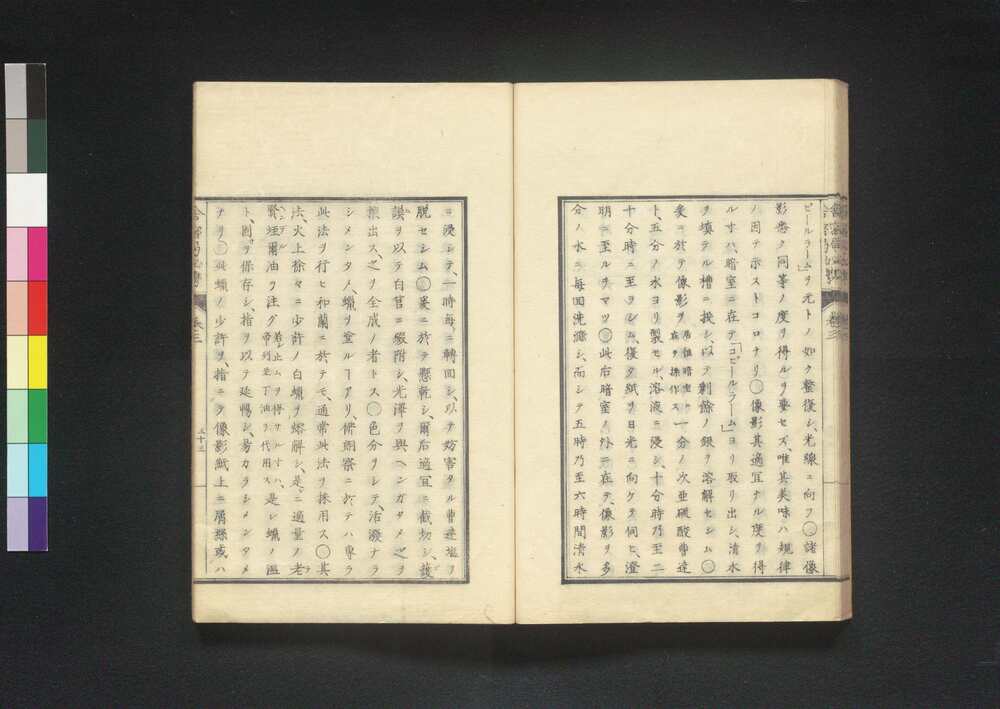 ピールラーム」ヲ元トノ如ク整復シ、光線ニ向フ○諸像
影悉ク同等ノ度ヲ得ルヲ要セズ、唯其美味ハ規律
ノ因テ示ストコロナリ○像影其適宜ナル度ヲ得
ル寸ハ、暗室ニ在テ「コピールラーム」ヨリ取リ出シ、清水
ヲ填テル槽ニ投シ、以テ剰餘ノ銀ヲ溶解セシム○
爰ニ於テ像影ヲ
居恒暗室ニ
在テ操作ス
一分ノ次亜硫酸曹達
ト、五分ノ水ヨリ製セル、溶液ニ浸シ、十分時乃至二
十分時ニ至ヲシム、復タ紙ヲ日光ニ向ケテ伺ヒ、澄
明ニ至ルヲマツ○此后暗室ノ外ニ在テ、像影ヲ多
分ノ水ニ毎回洗滌シ、而シテ五時乃至六時間清水
ニ浸シテ、一時毎ニ轉回シ、以テ妨害タル曹達塩ヲ
脱セシム○爰ニ於テ懸乾シ、爾后適宜ニ截切シ、護
謨ヲ以テ白質ニ綴附シ、光澤ヲ與ヘンガタメ之ヲ
推出ス、之ヲ全成ノ者トス○色分ヲシテ、活潑ナラ
シメンタメ、蠟ヲ塗ルーアリ、佛朗察ニ於テハ専ラ
此法ヲ行ヒ和蘭ニ於テモ、通常此法ヲ採用ス○其
法、火上徐々ニ少許ノ白蠟ヲ熔解シ、是ニ適量ノ老
賢垤爾油ヲ注グ
若シ止ムヲ得サル寸ハ、
帝列並丁油ヲ代用ス
是レ蠟ノ温
ト、固ヲ保存シ、指ヲ以テ延暢シ、易カラシメンタメ
ナリ○此蠟ノ少許ヲ、指ニテ像影紙上ニ屑擦或ハ
卷三
三十三